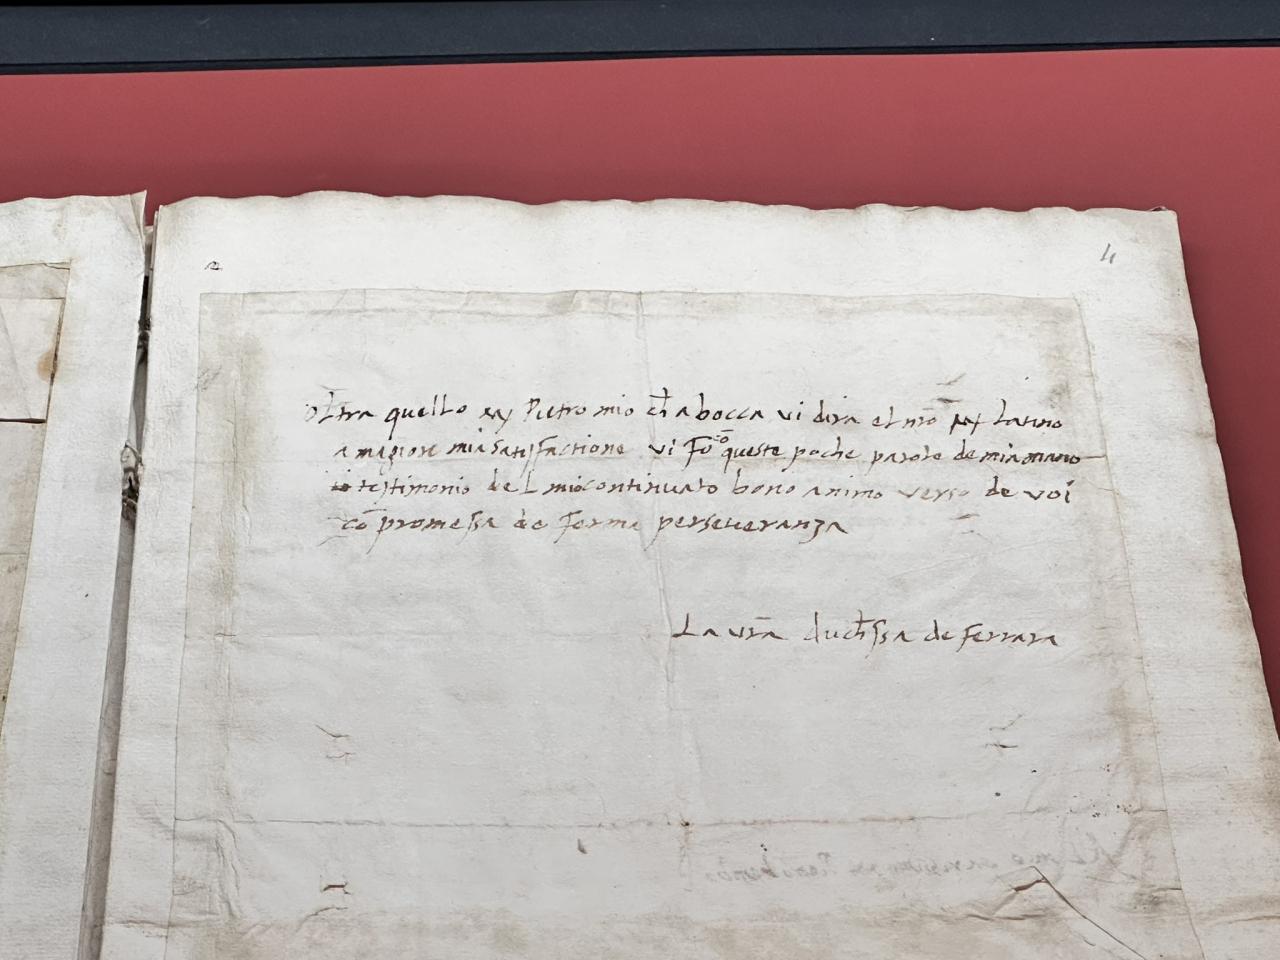 4
oltra quello Pietro mio ch̄ a bocca vi dira el nr̄o Latino
a magiore mia satisfactione vi fo cō queste poche parole de mia mano
testimonio del mio continuato bono animo verso de voi
cō promessa de ferma perseveranza
Laura duch̄ssa de Ferrara